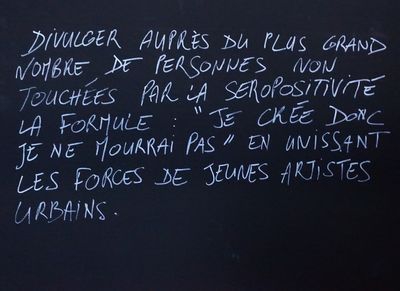 DIVULGER AUPRÈS DU PLUS GRAND
NOMBRE DE PERSONNES NON
TOUCHÉES PAR LA SEROPOSITIVITÉ
LA FORMULE : "JE CRÉE DONC
JE NE MOURRAI PAS" EN UNISSANT
LES FORCES DE JEUNES ARTISTES
URBAINS.